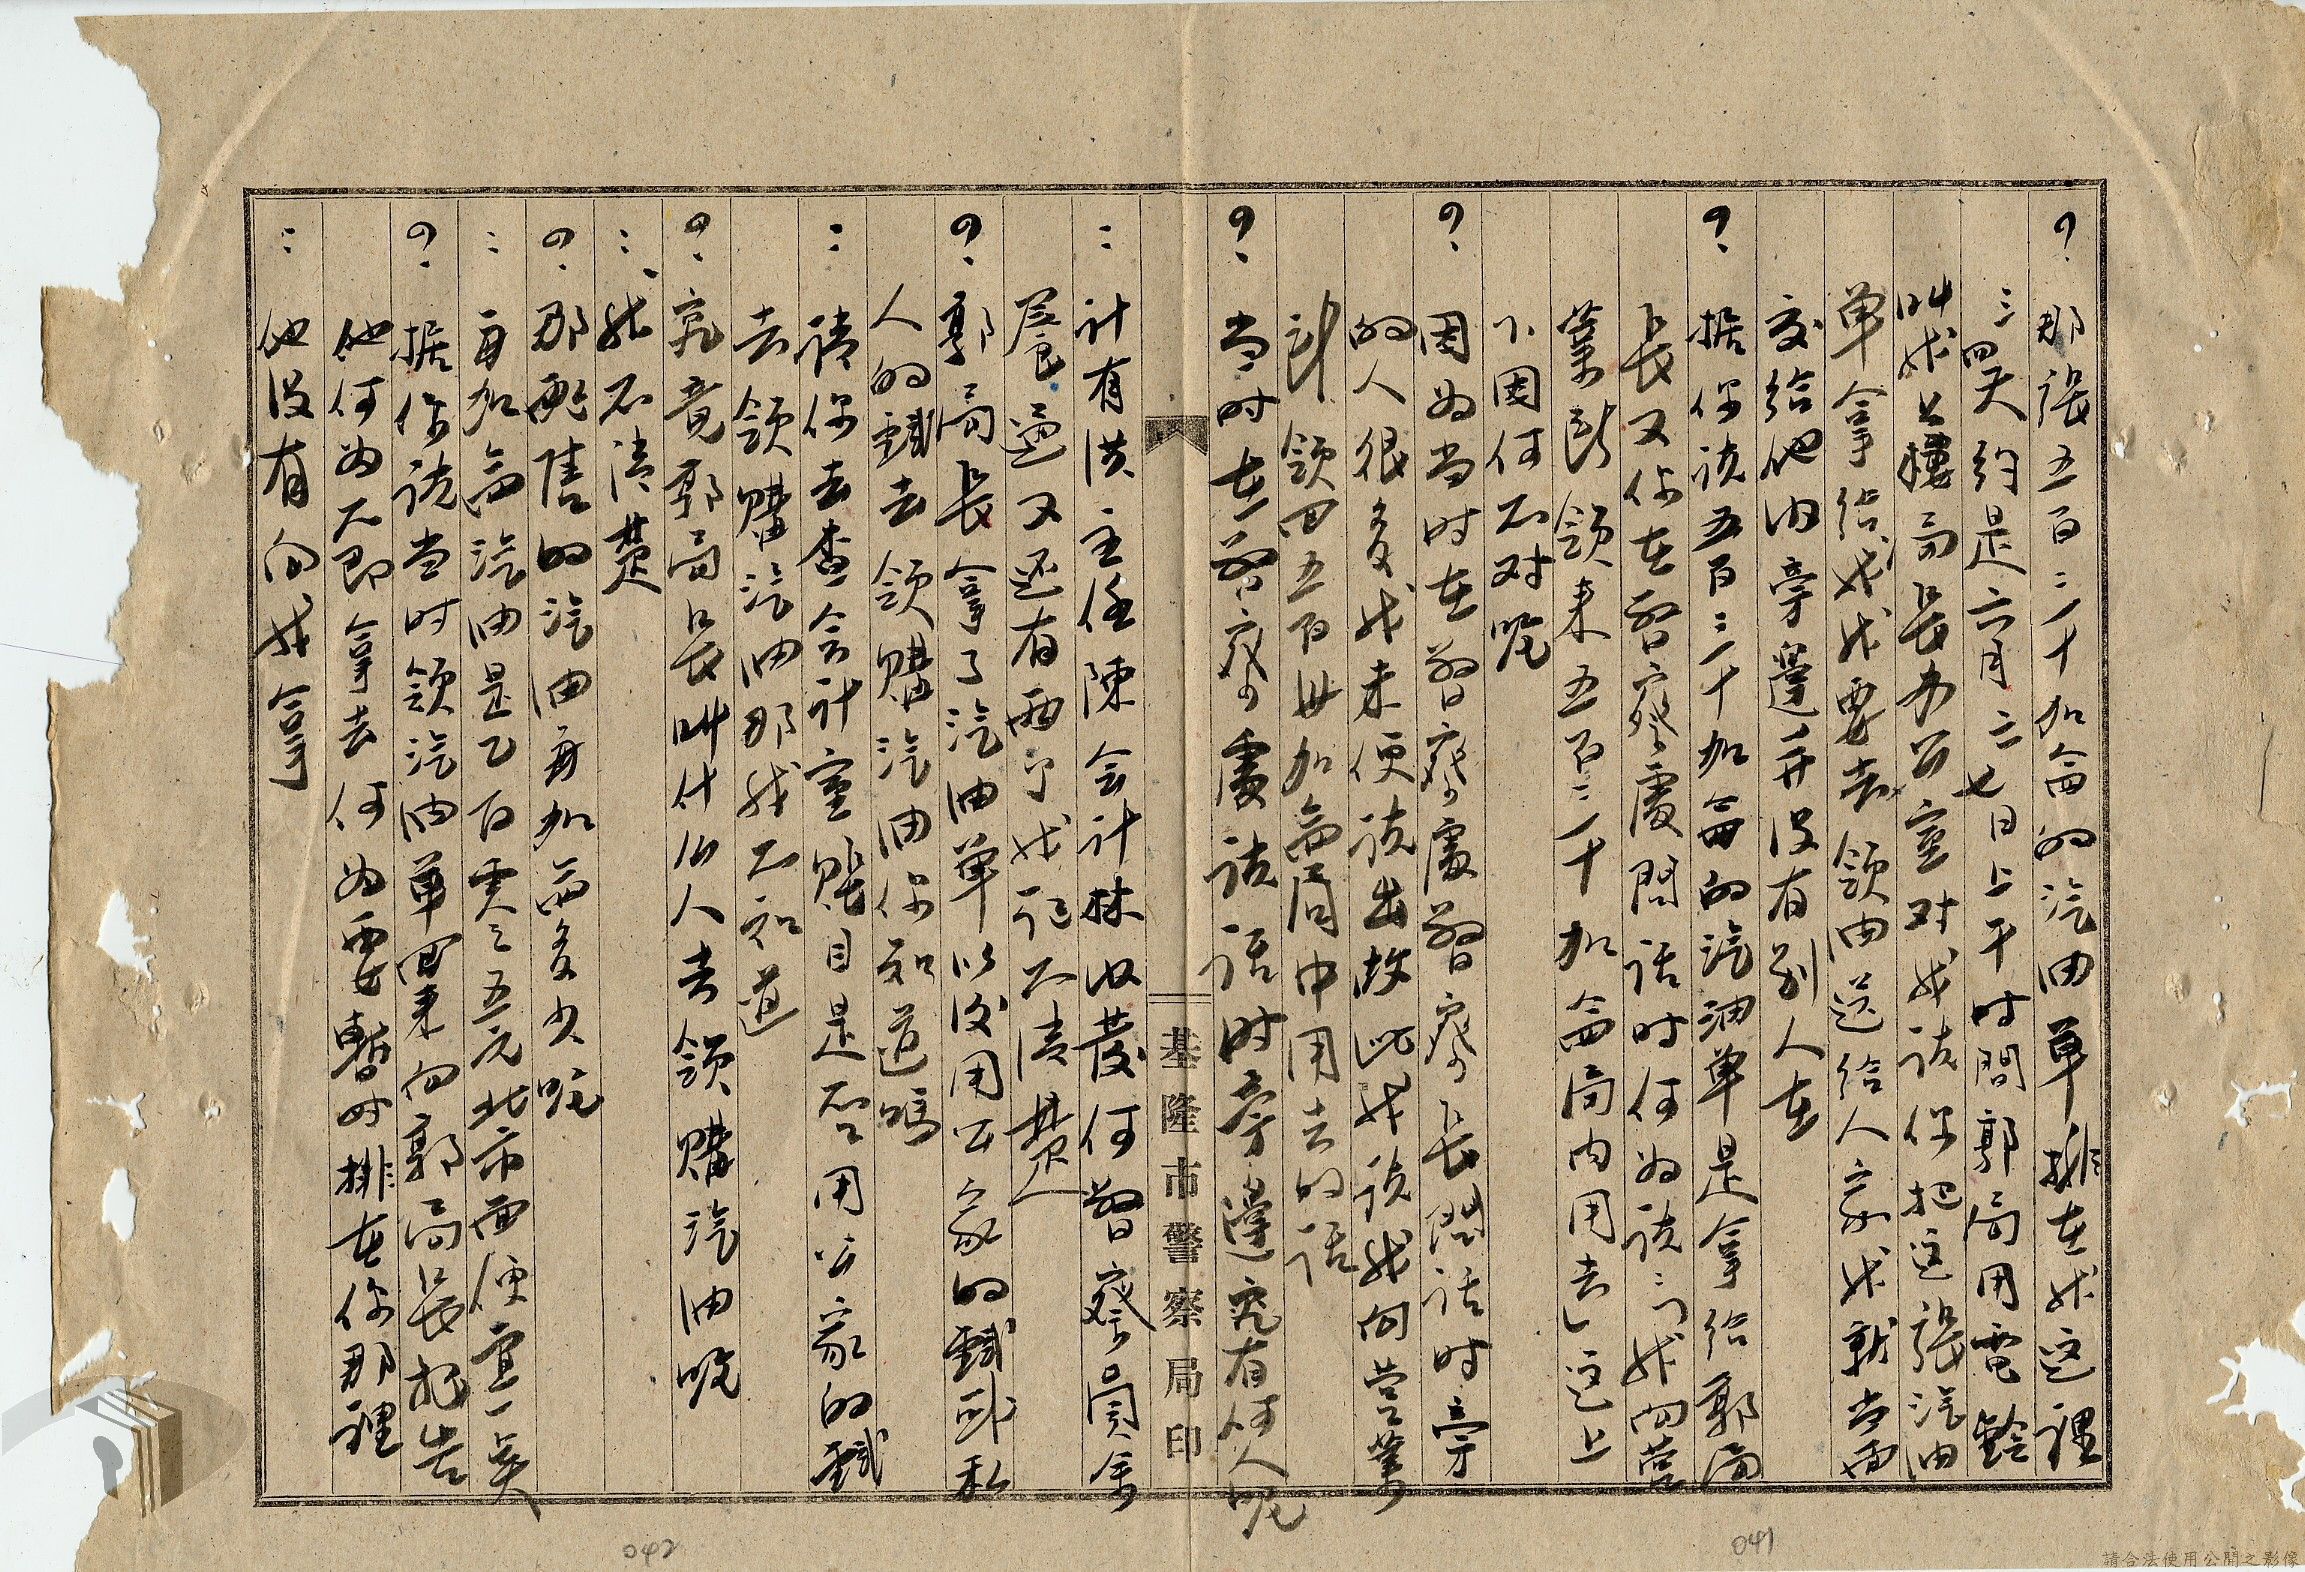 ？那張五百三十加侖的汽油單排在我這裡
三四天約是六月二七日上午时間郭局用電鈴
叫我上樓局長办公室对我说你把這張汽油
单拿給我我要去領油送給人家我就當面
交給他内旁邊并没有别人在
？据你说五百三十加侖的汽油单是拿给郭局
長又你在警察處問话时何为说：「我向营
業所領來五百三十加侖局内用去」這上
下因何不对呢
？因为当时在警察處警察長問话时旁
的人很多我未便说出故此我说我向营業
所領回五百卅加侖局中用去的话
？当时在警察處谈话时旁邊究有何人呢
基隆市警察局印
：计有洪主任陳会计林汝發何警察員金
晨 還又还有兩个我记不清楚
？郭局長拿了汽油单以後用公家的錢或私
人的錢去領購汽油你知道嗎
：请你去查会计室賬目是否用公家的錢
去領購汽油那我不知道
？究竟郭局長叫什么人去領購汽油呢
：我不清楚
？那配售的汽油每加侖多少呢
：每加侖汽油是乙百零五元比市面便宜一點
？据你说当时領汽油单回来向郭局長报告
他何为不即拿去何为要暫时排在你那裡
：他没有向我拿
042
041
請合法使用公開之影像